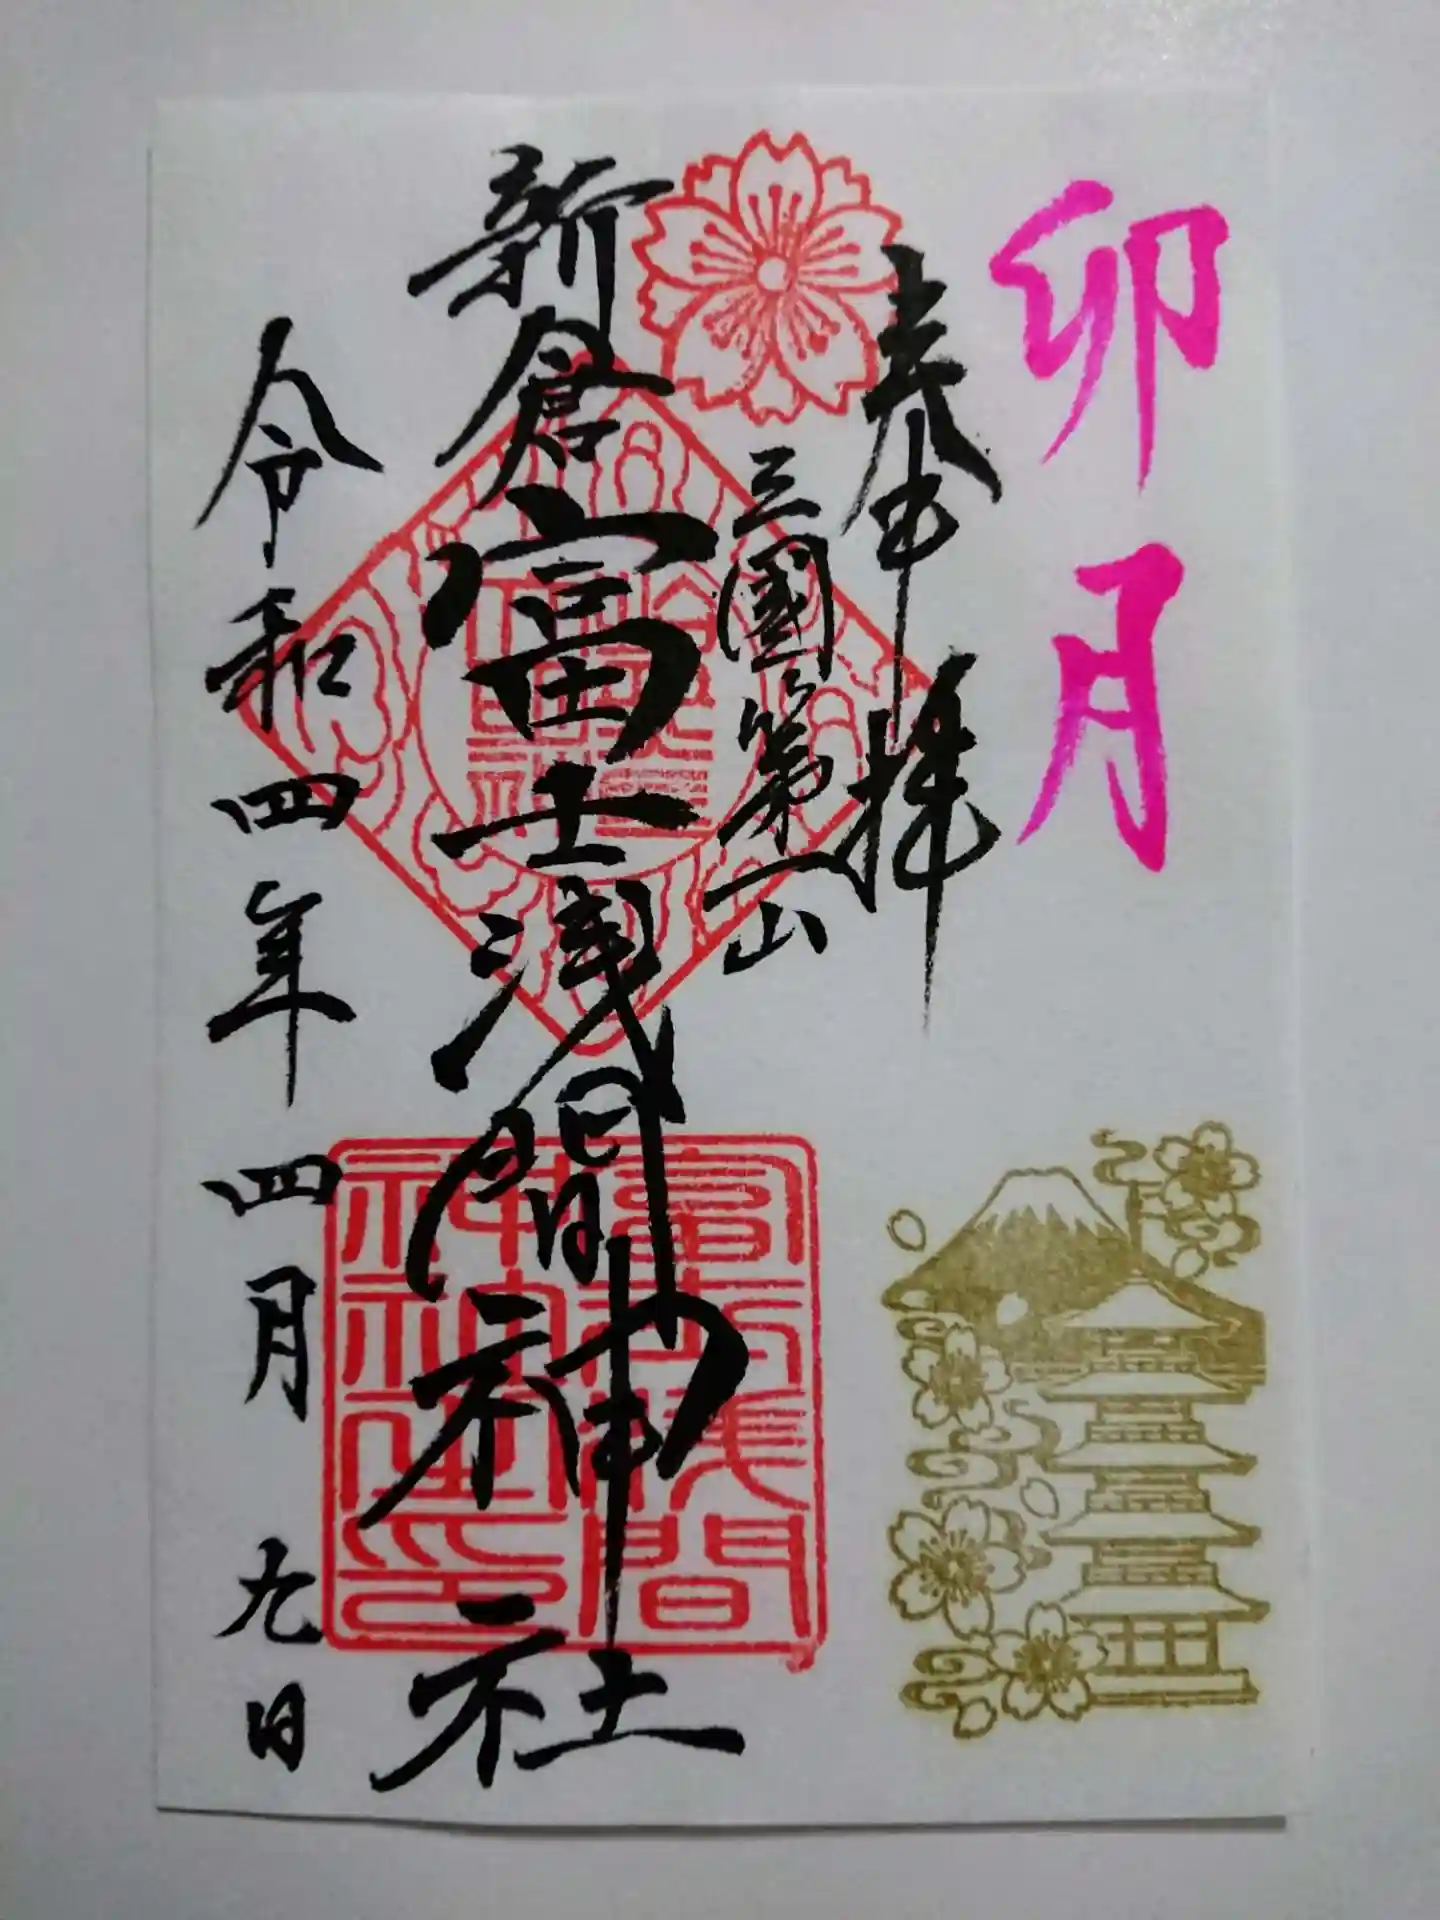 卯月
奉拝
三國第一山
新倉富士浅間神社
令和四年四月九日
富士浅間
神社之印